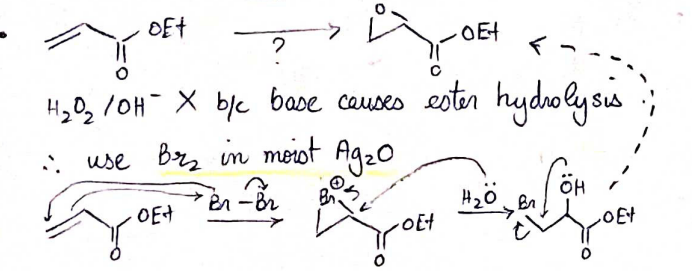 OEt ? O OEt
O O
H2O2 / OH⁻ X b/c base causes ester hydrolysis
∴ use Br2 in moist Ag2O
OEt Br – Br Br⊕ OEt H2Ö Br ÖH OEt
O O O